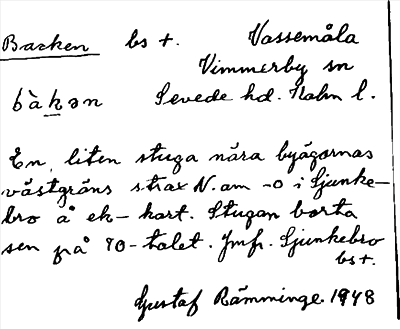 Backen bs +. Vassemåla
Vimmerby sn
bàkən Sevede hd. Kalm l.
En liten stuga nära byägornas
västgräns strax N. om -o i Gjunke-
bro å ek-kart. Stugan borta
sen på 70-talet. Jmfr. Gjunkebro
bs+.
Gustaf Rämminge 1948